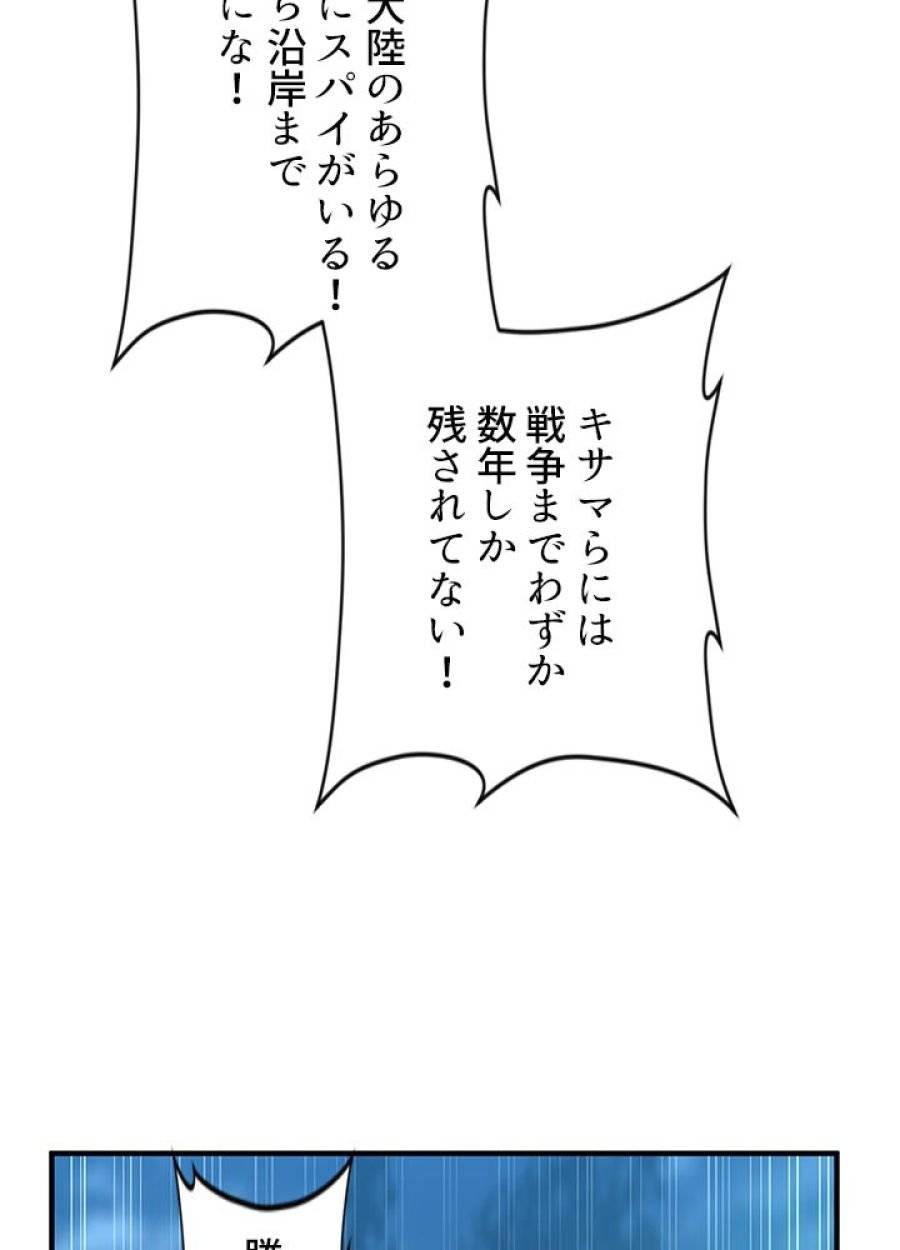 大陸のあらゆる
にスパイがいる！
ら沿岸まで
にな！
キサマらには
戦争までわずか
数年しか
残されてない！